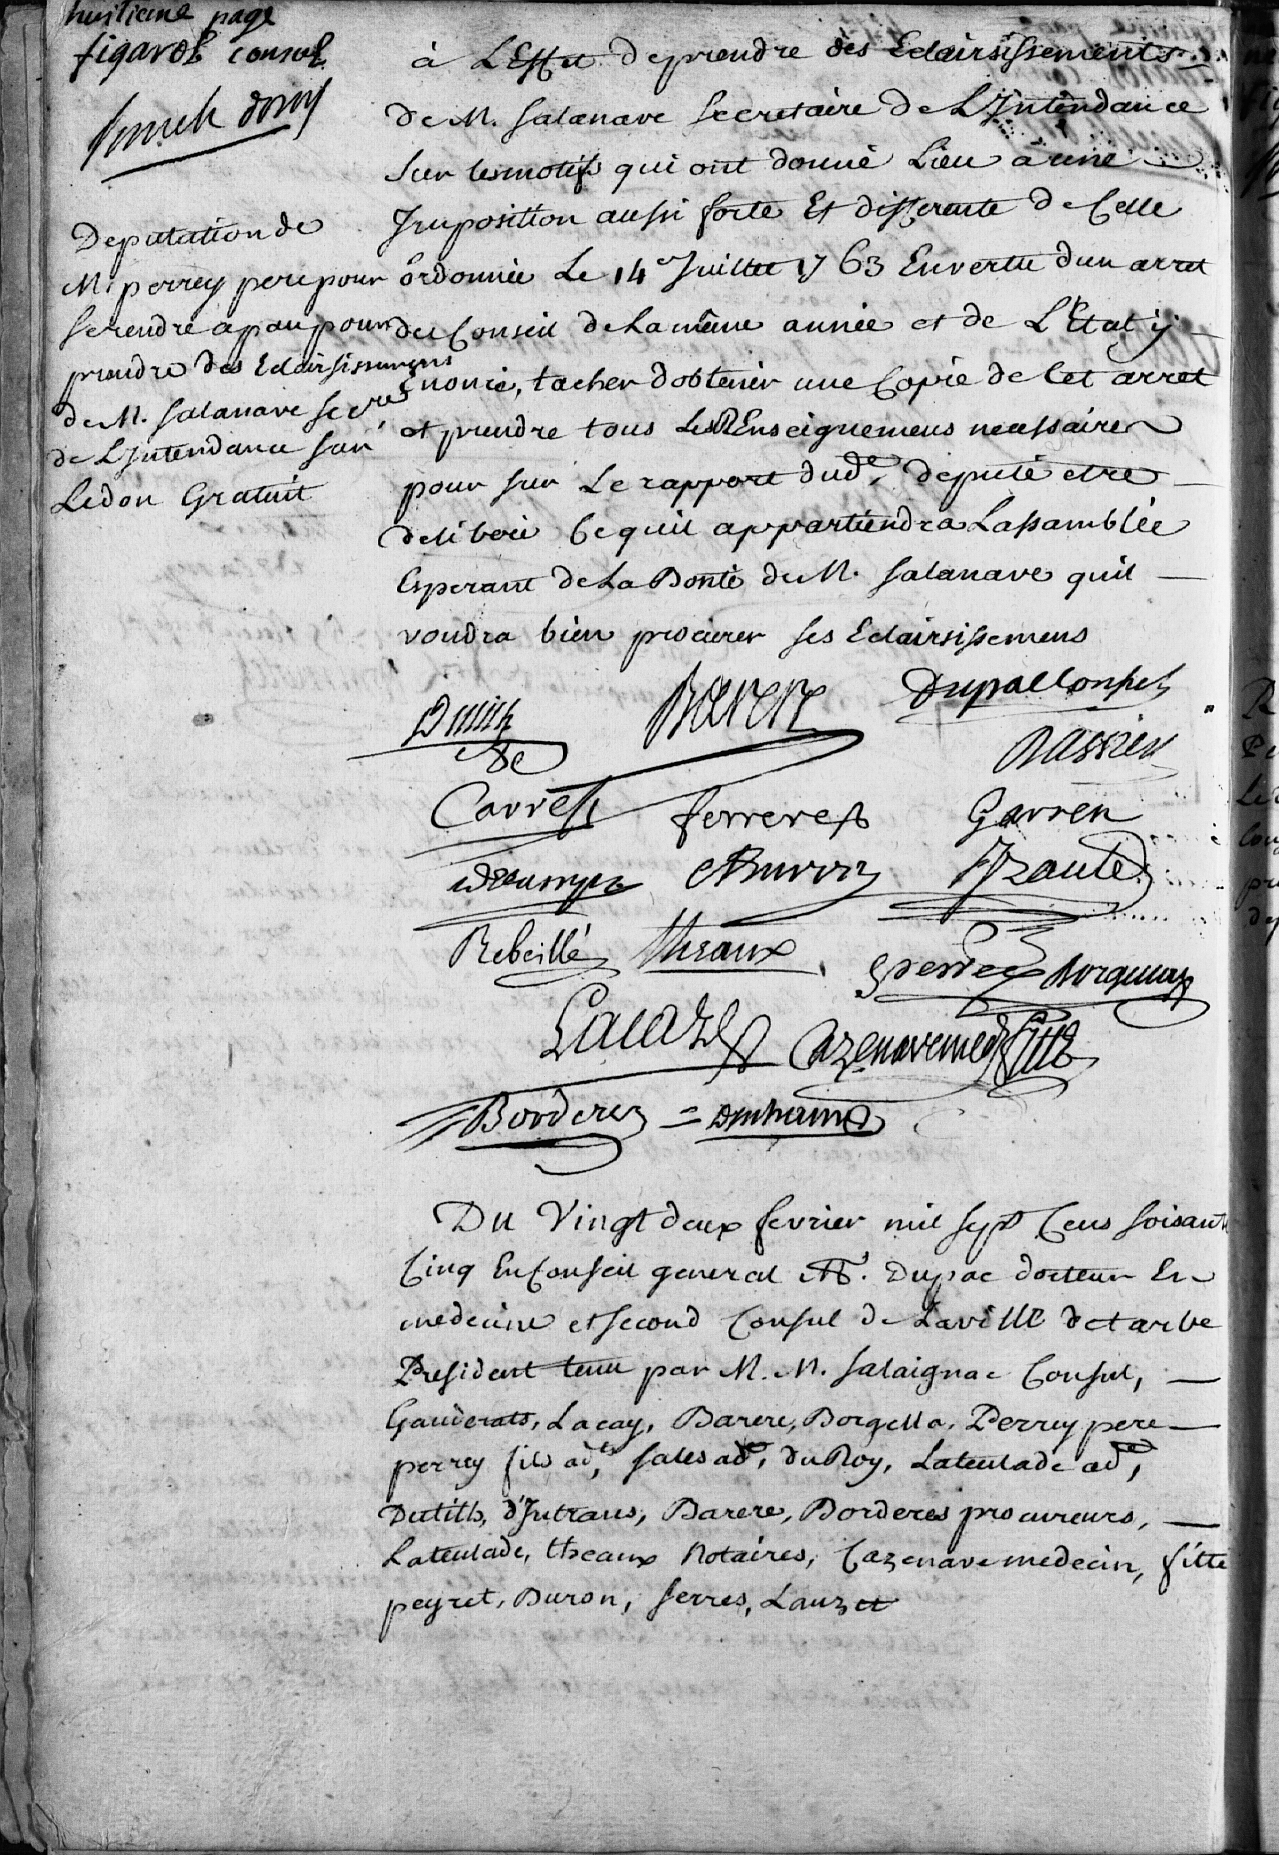 huitieme page
figarol consul
Deputation de
M. perrey pere pour
se rendre a pau pour
prendre des Eclairsissemens
de M. salanave secre.re
de L'Intendance sur
Le don Gratuit
à L'Effet de prendre des Eclairsissements
de M. salanave secretaire de L'Intendance
sur les motifs qui ont donné Lieu a une
Imposition aussi forte Et differente de Celle
ordonnée Le 14e Juillet 1763 En vertu d'un arret
du Conseil de la même année et de L'Etat y
Enoncé, tacher d'obtenir une Copie de Cet arret
et prendre tous Les REnseignemens necessaires
pour sur Le rapport dud.e deputé etre
deliberé Ce quil appartiendra Lassamblée
Esperant de La Bonté de M. salanave quil
voudra bien procurer ses Eclairsissemens
Barere
Dupac Consul
Bassien
Carrest
ferreres
Garren
Buron
Azaute
Rebeillé
theaux
Perrey
Borgella
Lacaze
Cazenave med
fitte
Borderes
Du Vingt deux fevrier mil sept Cens soisante
Cinq En Conseil general M. Dupac docteur En
medecine et second Consul de La ville de tarbe
President tenu par M. M. salaignac Consul,
Gauderats, Lacay, Barere, Borgella, Perrey pere
perrey fils ad.t, sales ad.e, du Roy, Lateulade ad.e,
Dutilh, d'Intrans, Barere, Borderes procureurs,
Lateulade, theaux Notaires, Cazenave medecin, fitte
peyret, Buron, serres, Lauzet